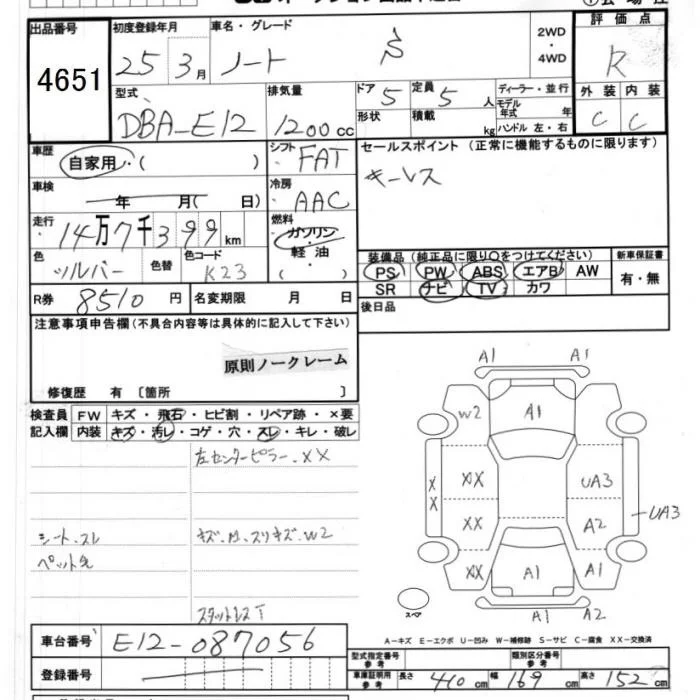 出品番号
4651
初度登録年月
25 3月
車名・グレード
ノート S
2WD
・
4WD
評価点
R
外装 内装
C C
型式
DBA-E12
排気量
1200cc
ドア 5
定員 5人
形状
積載 kg
ディーラー・並行
モデル年式 年
ハンドル 左・右
車歴
自家用・( )
シフト FAT
車検 年 月( 日)
冷房 AAC
走行 14万7千399km
燃料
ガソリン
軽油
( )
色
シルバー
色替
色コード
K23
R券 8510円
名変期限 月 日
セールスポイント (正常に機能するものに限ります)
キーレス
装備品 (純正品に限り○をつけてください)
PS PW ABS エアB AW
SR ナビ TV カワ
新車保証書
有・無
後日品
注意事項申告欄 (不具合内容等は具体的に記入して下さい)
原則ノークレーム
修復歴 有 〔箇所 〕
検査員記入欄
FW キズ・飛石・ヒビ割・リペア跡・×要
内装 キズ・汚レ・コゲ・穴・スレ・キレ・破レ
左センターピラー.XX
シート.スレ
キズ.凹.スリキズ.W2
スタットレスT
A1 A1
W2 A1
XX XX UA3
XX A2 UA3
XX A1 A1
A1 A2
スペア
A-キズ E-エクボ U-凹み W-補修跡 S-サビ C-腐食 XX-交換済
車台番号 E12-087056
登録番号
型式指定番号 参考
類別区分番号 参考
車庫証明用 参考
長さ 410cm 幅 169cm 高さ 152cm